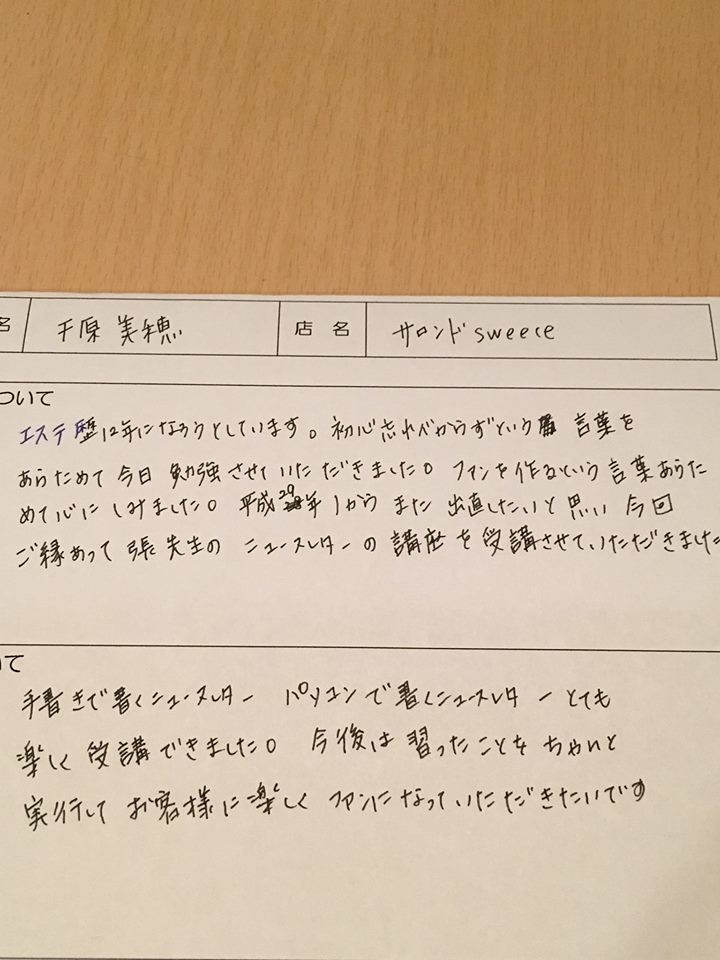 名 千原 美穂 店 名 サロンド sweece
ついて
エステ歴12年になろうとしています。初心忘れべからずという 言葉を
あらためて今日 勉強させていただきました。ファンを作るという言葉あらた
めて心にしみました。平成29年1からまた 出直したいと思い 今回
ご縁あって 張先生の ニュースレターの 講座を受講させていただきました
いて
手書きで書くニュースレター パソコンで書くニュースレターとても
楽しく 受講できました。今後は 習ったことを ちゃんと
実行して お客様に楽しく ファンになっていただきたいです